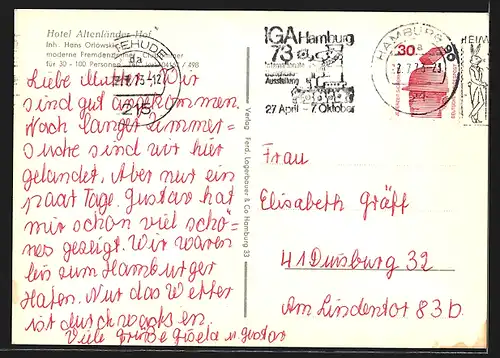 Hotel Altenländer Hof
Inh. Hans Orlowski
moderne Fremdenzimmer
für 30 - 100 Personen
Liebe Mutti! Wir
sind gut angekommen.
Nach langer Zimmer=
suche sind wir hier
gelandet. Aber nur ein
paar Tage. Gustav hat
mir schon viel schö=
nes gezeigt. Wir waren
bis zum Hamburger
Hafen. Nur das Wetter
ist durchwachsen.
Viele Grüße Gisela u. Gustav
Verlag Ferd. Lagerbauer & Co Hamburg 33
IGA Hamburg
73
Internationale
Gartenbau
Ausstellung
27 April - 7. Oktober
HAMBURG
30
Frau
Elisabeth Gräff
41 Duisburg 32
Am Lindentor 83 b.